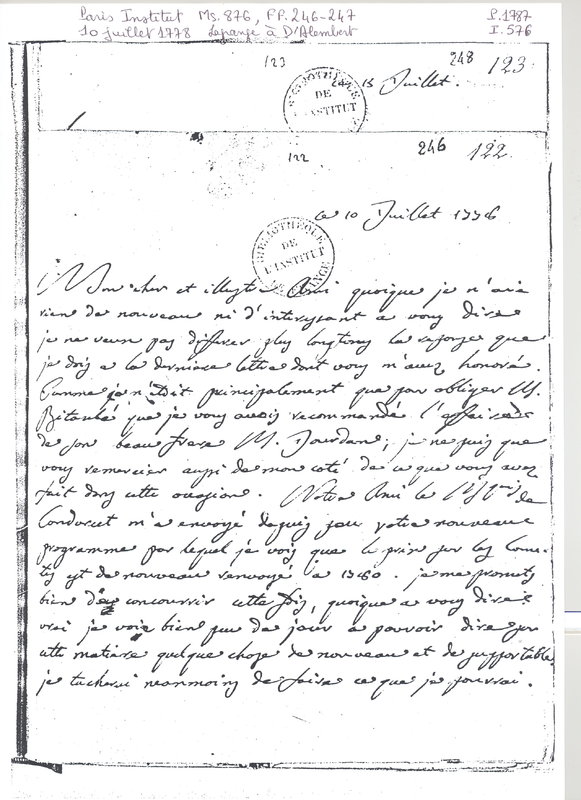 Paris Institut Ms. 876, PP. 246-247
P. 1787
10 juillet 1778 Lagrange à D'Alembert
I. 576
123
248
123
15 Juillet.
BIBLIOTHEQUE
DE
L'INSTITUT
122
246
122
ce 10 Juillet 1778
BIBLIOTHEQUE
DE
L'INSTITUT
Mon cher et illustre Ami quoique je n'aie
rien de nouveau ni d'interessant a vous dire
je ne veux pas differer plus longtems la reponse que
je dois a la derniere lettre dont vous m'avez honoré.
Comme ce n'étoit principalement que pour obliger M.
Bitaubé que je vous avois recommandé l'affaire
de son beau frere M. Jourdan; je ne puis que
vous remercier aussi de mon coté de ce que vous avez
fait dans cette occasion. Notre Ami le M.quis de
Condorcet m'a envoyé depuis peu votre nouveau
programme par lequel je vois que le prix sur les Come-
tes est de nouveau renvoyé a 1780. je me promets
bien d'y concourrir cette fois, quoique a vous dire
vrai je voie bien peu de jour a pouvoir dire sur
cette matiere quelque chose de nouveau et de supportable
je tacherai neanmoins de faire ce que je pourrai.